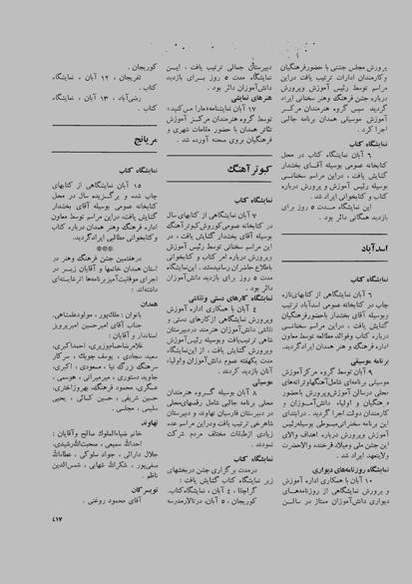 پرورش مجلس جشنی با حضور فرهنگیان
و کارمندان ادارات ترتیب یافت در این
مراسم توسط رئیس آموزش و پرورش
درباره جشن فرهنگ و هنر سخنانی ایراد
گردید. سپس گروه هنرمندان مرکز
آموزش موسیقی همدان برنامه جالبی
اجرا کرد.
نمایشگاه کتاب
۶ آبان نمایشگاه کتاب در محل
کتابخانه عمومی بوسیله آقای بخشدار
گشایش یافت، در این مراسم سخنانی
بوسیله رئیس آموزش و پرورش درباره
کتاب و کتابخوانی ایراد شد.
این نمایشگاه مدت ۵ روز برای
بازدید همگانی دائر بود.
اسدآباد
نمایشگاه کتاب
۶ آبان نمایشگاهی از کتابهای تازه
چاپ در کتابخانه عمومی اسدآباد ترتیب
و بوسیله آقای بخشدار با حضور فرهنگیان
گشایش یافت، در این مراسم سخنانی
درباره کتاب و فوائد مطالعه توسط معاون
اداره فرهنگ و هنر همدان ایراد گردید.
برنامه موسیقی
۹ آبان توسط گروه مرکز آموزش
موسیقی برنامه‌ای شامل آهنگها و ترانه‌های
محلی در سالن آموزش و پرورش با حضور
فرهنگیان و اولیاء دانش‌آموزان و
کارمندان دولت اجرا گردید. در ابتدای
این برنامه سخنرانی مبسوطی بوسیله رئیس
آموزش و پرورش درباره اهداف والای
این جشن ملی و میلاد فرخنده والاحضرت
ولایتعهد ایراد شد.
نمایشگاه روزنامه‌های دیواری
۱۰ آبان با همکاری اداره آموزش
و پرورش نمایشگاهی از روزنامه‌های
دیواری دانش‌آموزان ممتاز در سالن
دبیرستان جمالی ترتیب یافت، این
نمایشگاه مدت ۵ روز برای بازدید
دانش‌آموزان دائر بود.
هنرهای نمایشی
۱۷ آبان نمایشنامه «مارا مس کنید»
توسط گروه هنرمندان مرکز آموزش
تئاتر همدان با حضور مقامات شهری و
فرهنگیان بروی صحنه آورده شد.
کبوتر آهنگ
نمایشگاه کتاب
۷ آبان نمایشگاهی از کتابهای سال
در کتابخانه عمومی کوروش کبوتر آهنگ
بوسیله آقای بخشدار گشایش یافت، در
این مراسم سخنانی توسط رئیس آموزش
و پرورش درباره امر کتاب و کتابخوانی
باطلاع حاضران رسانیده شد. این نمایشگاه
مدت ۵ روز برای بازدید دانش‌آموزان
دائر بود.
نمایشگاه کارهای دستی و نقاشی
۸ آبان با همکاری اداره آموزش
و پرورش نمایشگاهی از کارهای دستی و
نقاشی دانش‌آموزان هنرمند در دبیرستان
شاهی ترتیب یافت و بوسیله رئیس آموزش
و پرورش گشایش یافت، از این نمایشگاه
مدت یکهفته عموم دانش‌آموزان و اولیاء
آنان بازدید کردند.
موسیقی
۸ آبان بوسیله گروه هنرمندان
محلی برنامه جالبی شامل رقصهای محلی
در دبیرستان فارسیان نهاوند و دبیرستان
شاهرخی ترتیب یافت و در این مراسم عده
زیادی از طبقات مختلف مردم شرکت
نمودند.
نمایشگاه کتاب
در مدت برگزاری جشن در بخشهای
زیر نمایشگاه کتاب گشایش یافت:
۴ آبان، نمایشگاه کتاب.
۵ آبان، در تالار مدرسه
کوریجان.
تفریجان، ۱۲ آبان، نمایشگاه
کتاب.
رضی‌آباد، ۱۳ آبان، نمایشگاه
کتاب.
مریانج
نمایشگاه کتاب
۱۵ آبان نمایشگاهی از کتابهای
چاپ شده و برگزیده سال در محل
کتابخانه عمومی بوسیله آقای بخشدار
گشایش یافت، در این مراسم توسط معاون
اداره فرهنگ و هنر همدان درباره کتاب
و کتابخوانی مطالبی ایراد گردید.
***
در هفتمین جشن فرهنگ و هنر در
استان همدان خانمها و آقایان زیر در
اجرای موفقیت‌آمیز برنامه‌ها اثر شایسته‌ای
داشته‌اند:
همدان
جناب آقای امیرحسین امیرپرویز
استاندار و آقایان:
نهاوند
تویسرکان
آقای محمود روغنی.
۴۱۷